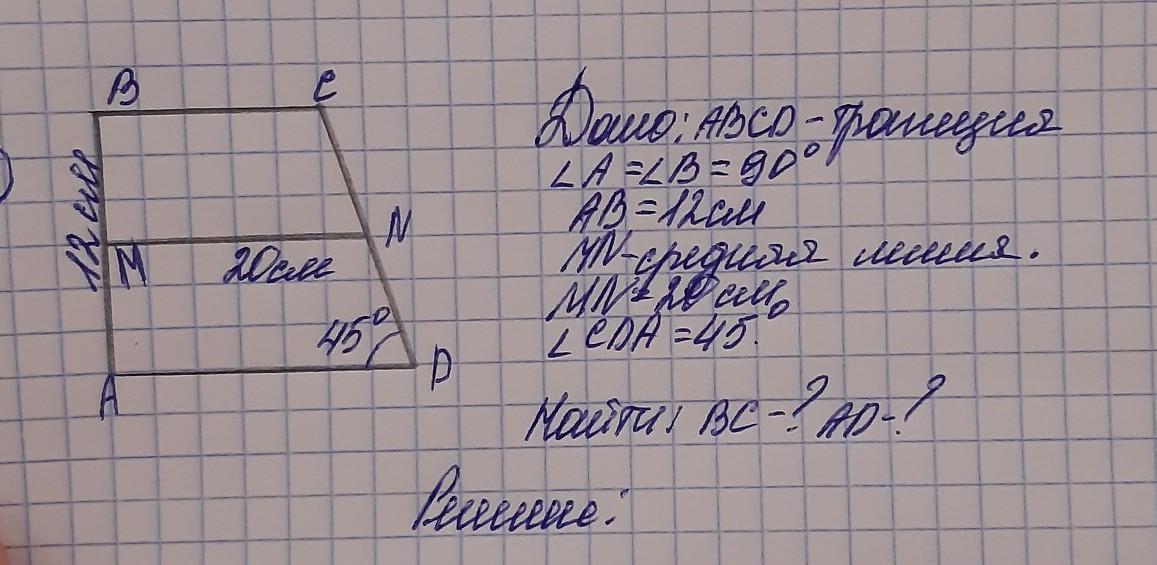 B C
12 см
M 20см N
45°
A D
Дано: ABCD - трапеция
∠A = ∠B = 90°
AB = 12см
MN - средняя линия.
MN = 20см
∠CDA = 45°.
Найти: BC - ? AD - ?
Решение: